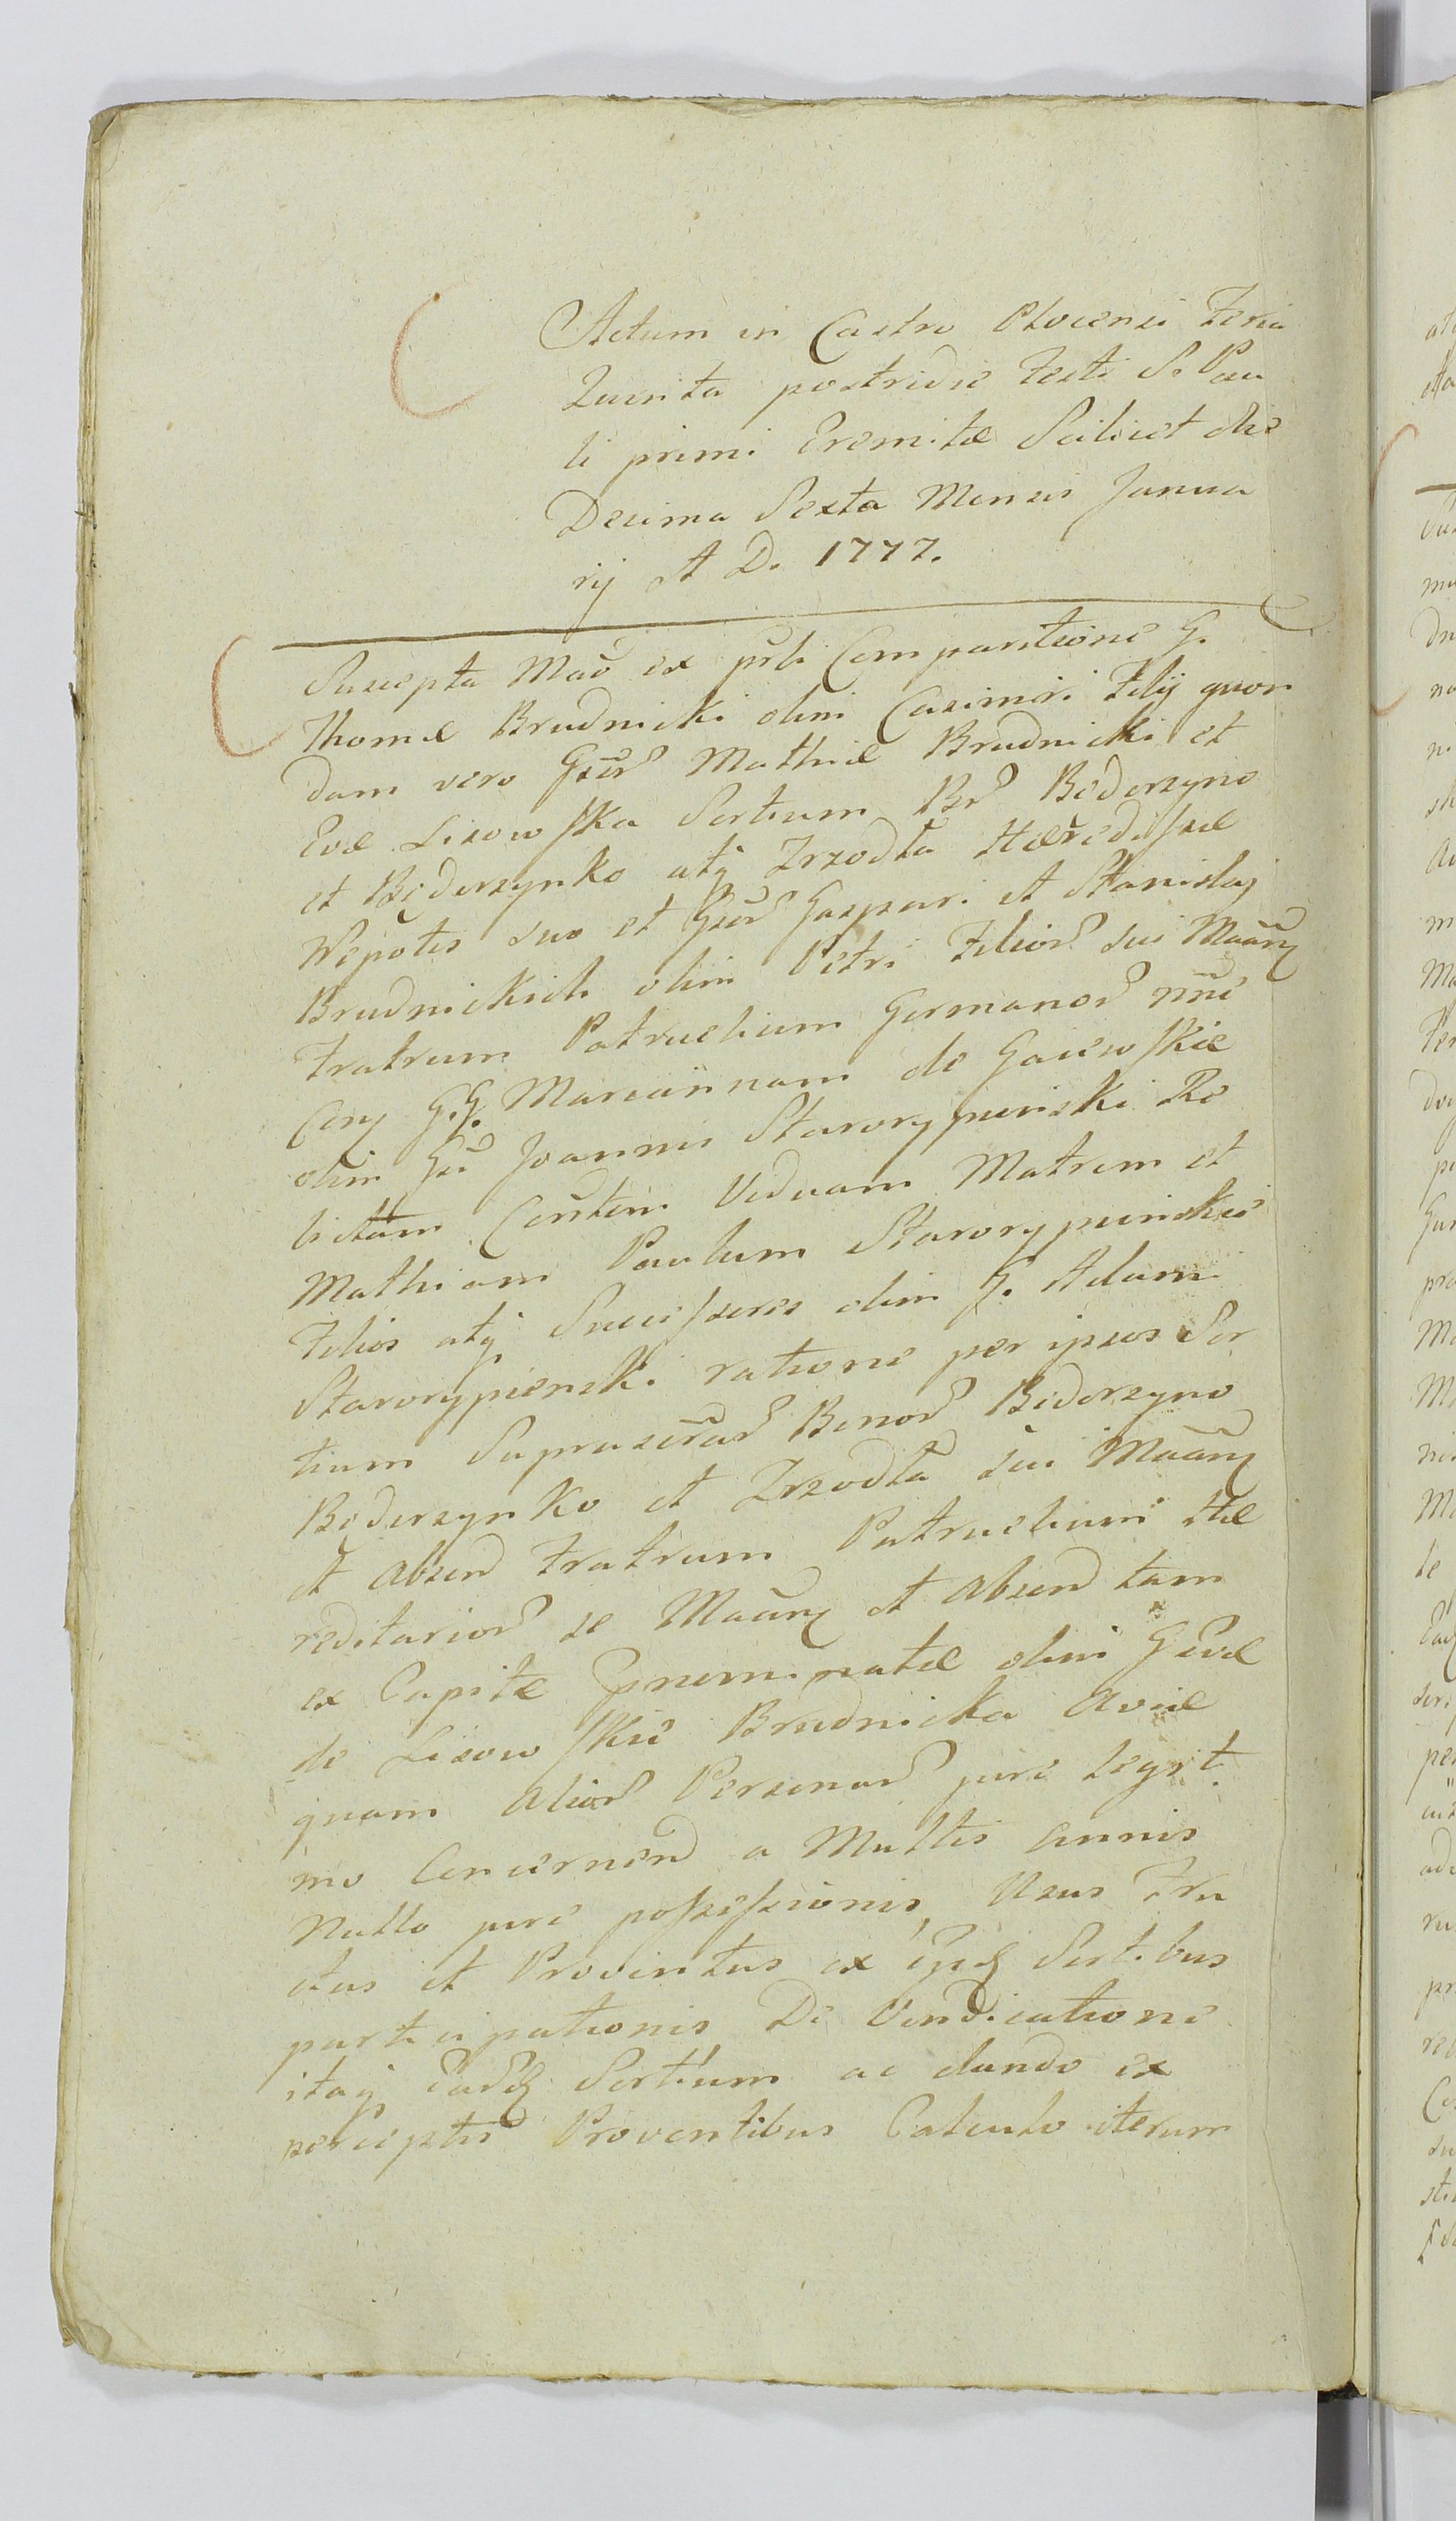 Actum in Castro Plocensi Feria
Quinta postridie Festi S. Pau
li primi Eremitæ Scilicet die
Decima Sexta Mensis Janua
rij A D. 1777.
Suscepta Mao ex prli Comparitione G.
Thomæ Brudnicki olim Casimiri Filij quon
dam vero Gser Mathiæ Brudnicki et
Evæ Lisowska Sortium Br Bederzyno
et Bederzynko atq Zrzodła Hæredissæ
Nepotis suo et Gser Gaspari et Stanislaj
Brudnickich olim Petri Filior sui Maarq
Fratrum Patruelium Germanor nne
Conq G.G. Mariannam de Gaiewskie
olim Gsi Joannis Starorypinski Re
lictam Conthm Viduam Matrem et
Mathiam Paulum Starorypinskie
Filios atq Successores olim G. Adami
Starorypienski ratione per ipsos Sor
tium Suprascrar Bonor Bederzyno
Bederzynko et Zrzodła sui Maarq
et Absen Fratrum Patruelium Hæ
reditarior se Maarq et Absend tam
ex Capite Prnominatæ olim G Evæ
de Lisowskie Brudnicka Aviæ
quam Alior Personar jure Legit
mo Concernend a Multis Annis
Nullo jure possessionis Usus Fru
ctus et Proventus ex ipsq Sortibus
participationis De Vendicatione
itaq Eardq Sortium ac dando ex
perceptis Proventibus Calculo iterum